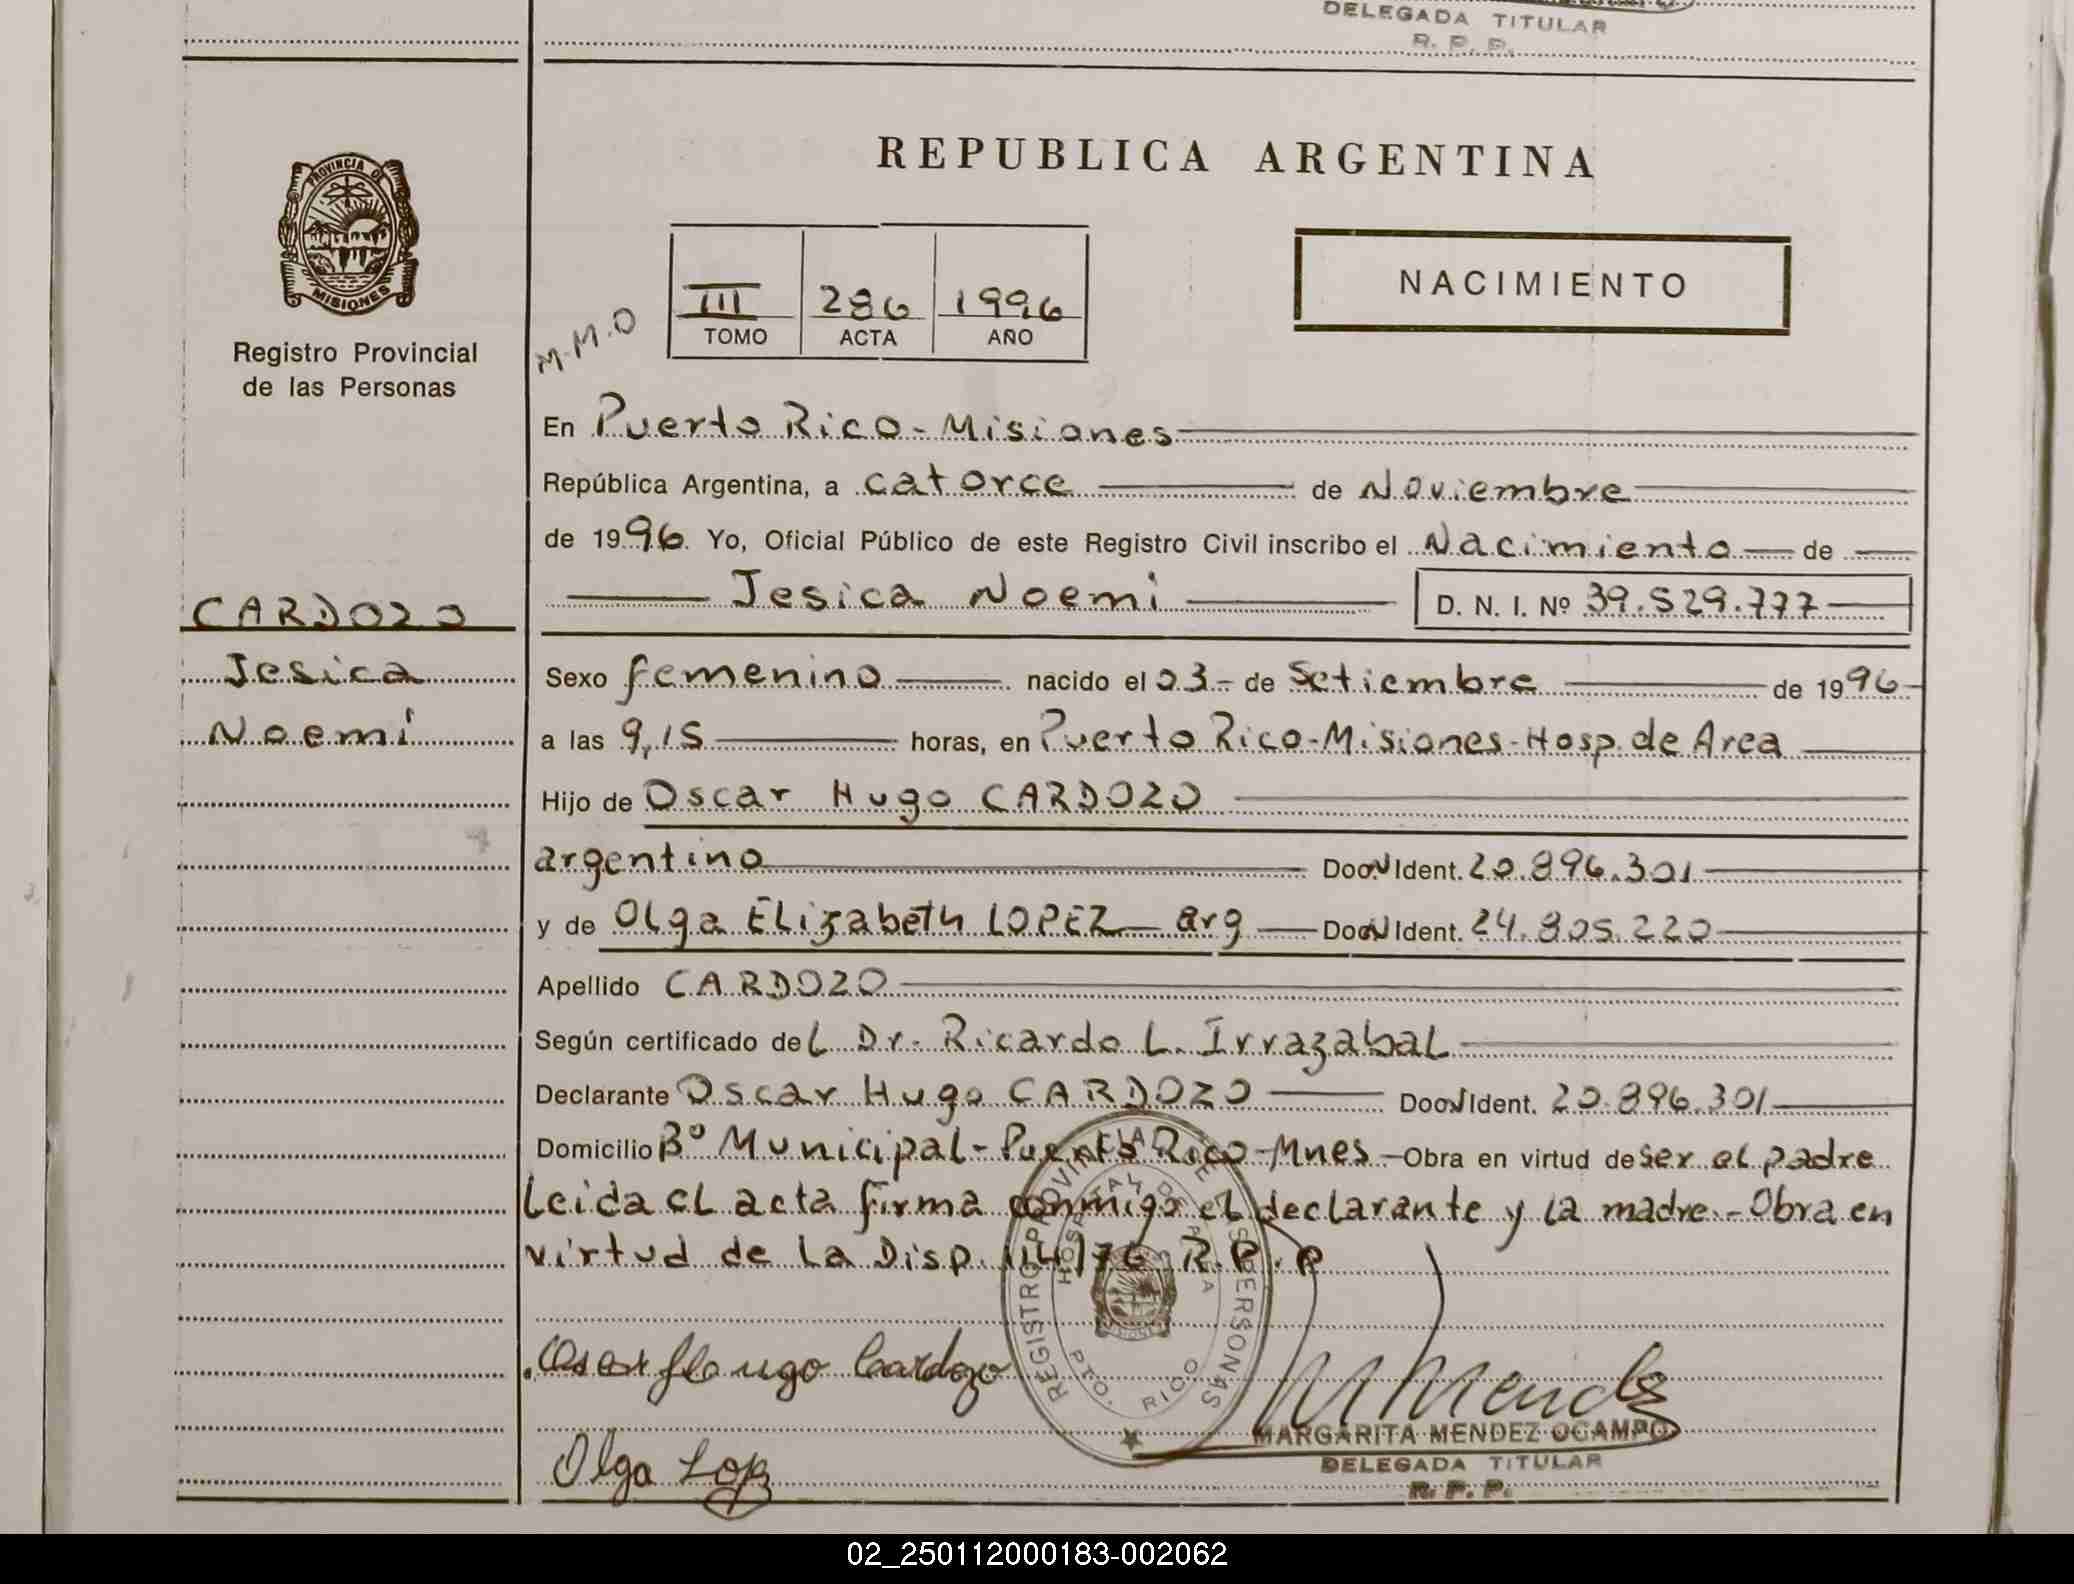 DELEGADA TITULAR
R. P. P.
PROVINCIA DE
MISIONES
Registro Provincial
de las Personas
REPUBLICA ARGENTINA
M.M.O
III 286 1996
TOMO ACTA AÑO
NACIMIENTO
En Puerto Rico - Misiones
República Argentina, a catorce de Noviembre
de 1996 Yo, Oficial Público de este Registro Civil inscribo el Nacimiento de
Jesica Noemi D. N. I. Nº 39.529.777
CARDOZO
Jesica
Noemi
Sexo femenino nacido el 03 - de Setiembre de 1996
a las 9,15 horas, en Puerto Rico - Misiones - Hosp. de Area
Hijo de Oscar Hugo CARDOZO
argentino Doc. N Ident. 20.896.301
y de Olga ELizabeth LOPEZ - arg Doc. N Ident. 24.805.220
Apellido CARDOZO
Según certificado del Dr. Ricardo L. Irrazabal
Declarante Oscar Hugo CARDOZO Doc. N Ident. 20.896.301
Domicilio Bº Municipal - Puerto Rico - Mnes - Obra en virtud de ser el padre
Leida el acta firma conmigo el declarante y la madre. - Obra en
virtud de la Disp. 114/76 R.P.P
REGISTRO PROVINCIAL DE LAS PERSONAS
HOSPITAL DE AREA
PTO. RICO
MISIONES
Oscar Hugo Cardozo
M Mendez
MARGARITA MENDEZ OCAMPO
DELEGADA TITULAR
R. P. P.
Olga Lopez
02_250112000183-002062